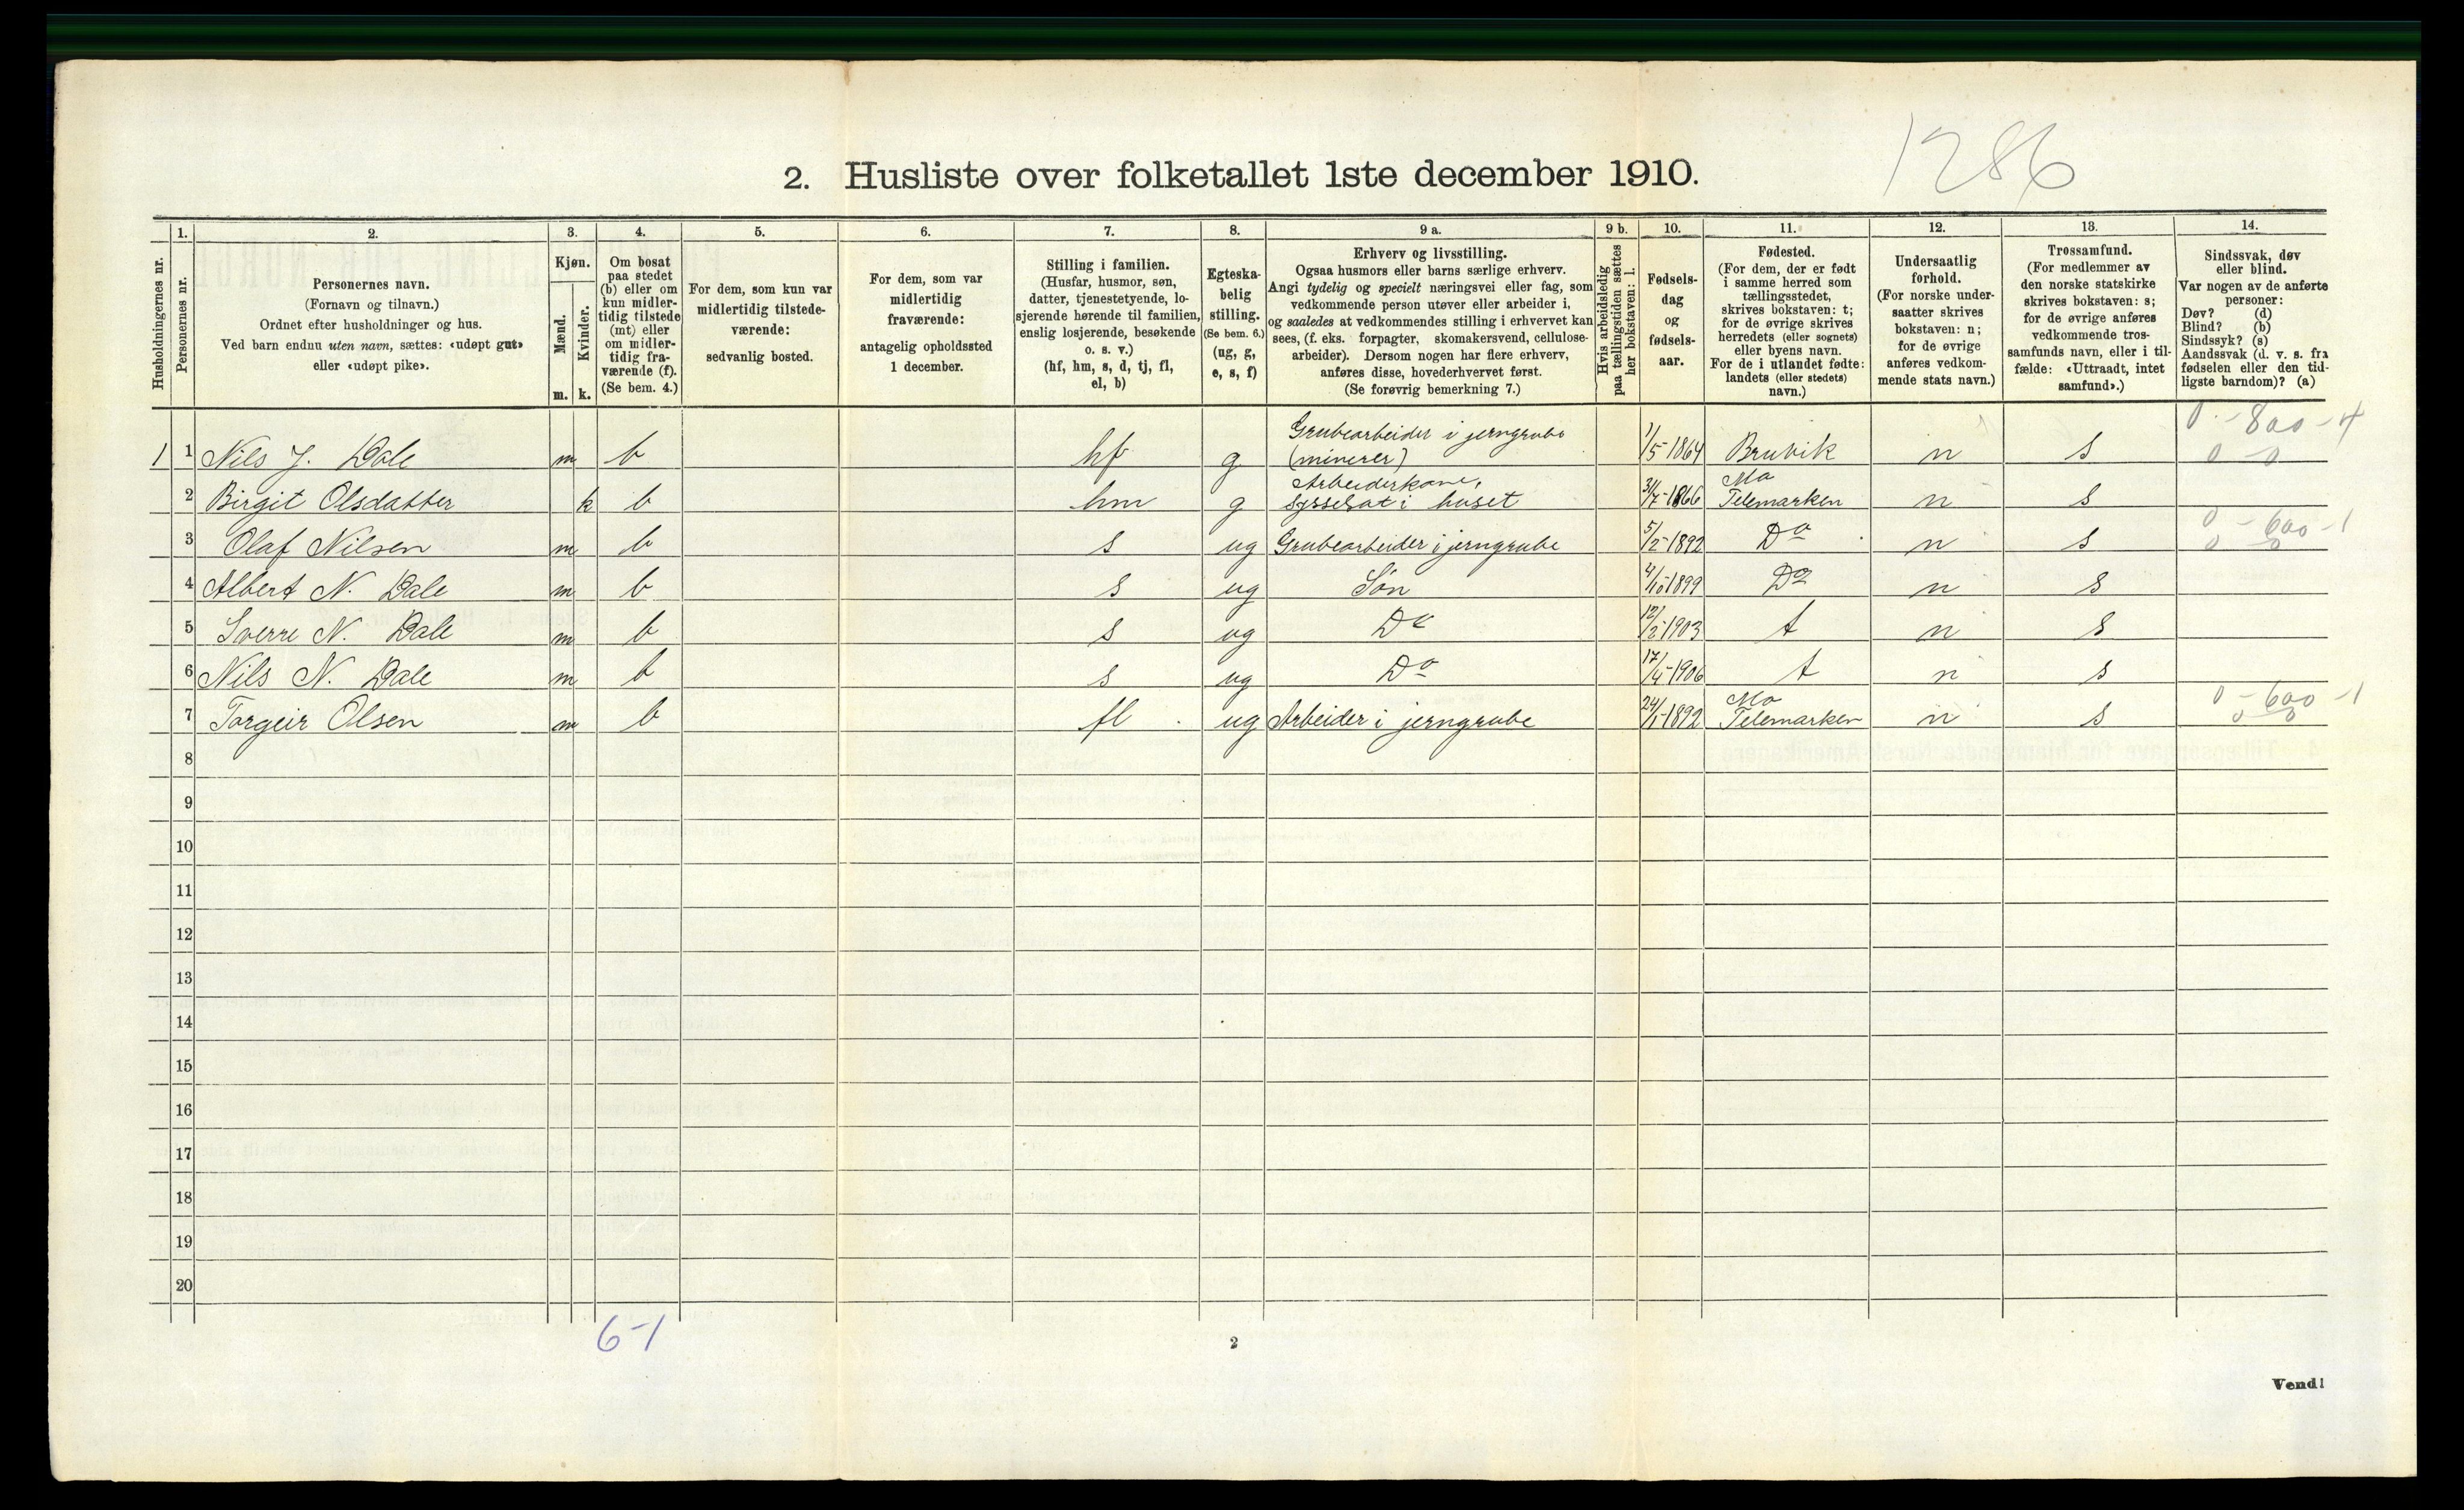 1286
2. Husliste over folketallet 1ste december 1910.
Husholdningernes nr.
1.
Personernes nr.
2.
Personernes navn.
(Fornavn og tilnavn.)
Ordnet efter husholdninger og hus.
Ved barn endnu uten navn, sættes: «udøpt gut»
eller «udøpt pike».
3.
Kjøn.
Mænd.
Kvinder.
m. k.
4.
Om bosat
paa stedet
(b) eller om
kun midler-
tidig tilstede
(mt) eller
om midler-
tidig fra-
værende (f).
(Se bem. 4.)
5.
For dem, som kun var
midlertidig tilstede-
værende:
sedvanlig bosted.
6.
For dem, som var
midlertidig
fraværende:
antagelig opholdssted
1 december.
7.
Stilling i familien.
(Husfar, husmor, søn,
datter, tjenestetyende, lo-
sjerende hørende til familien,
enslig losjerende, besøkende
o. s. v.)
(hf, hm, s, d, tj, fl,
el, b)
8.
Egteska-
belig
stilling.
(Se bem. 6.)
(ug, g,
e, s, f)
9 a.
Erhverv og livsstilling.
Ogsaa husmors eller barns særlige erhverv.
Angi tydelig og specielt næringsvei eller fag, som
vedkommende person utøver eller arbeider i,
og saaledes at vedkommendes stilling i erhvervet kan
sees, (f. eks. forpagter, skomakersvend, cellulose-
arbeider). Dersom nogen har flere erhverv,
anføres disse, hovederhvervet først.
(Se forøvrig bemerkning 7.)
9 b.
Hvis arbeidsledig
paa tællingstiden sættes
her bokstaven: l.
10.
Fødsels-
dag
og
fødsels-
aar.
11.
Fødested.
(For dem, der er født
i samme herred som
tællingsstedet,
skrives bokstaven: t;
for de øvrige skrives
herredets (eller sognets)
eller byens navn.
For de i utlandet fødte:
landets (eller stedets)
navn.)
12.
Undersaatlig
forhold.
(For norske under-
saatter skrives
bokstaven: n;
for de øvrige
anføres vedkom-
mende stats navn.)
13.
Trossamfund.
(For medlemmer av
den norske statskirke
skrives bokstaven: s;
for de øvrige anføres
vedkommende tros-
samfunds navn, eller i til-
fælde: «Uttraadt, intet
samfund».)
14.
Sindssvak, døv
eller blind.
Var nogen av de anførte
personer:
Døv? (d)
Blind? (b)
Sindssyk? (s)
Aandssvak (d. v. s. fra
fødselen eller den tid-
ligste barndom)? (a)
Grubearbeider i jerngrube 0 - 800 - 4
1 1 Nils J. Dale m b hf g (minerer) 1/5-1864 Brubik n s 0 - 0
Arbeiderkone, Mo
2 Birgit Olsdatter k b hm g sysselsat i huset 31/7-1866 Telemarken n s
3 Olaf Nilsen m b s ug Grubearbeider i jerngrube 5/2-1892 Do n s 0 - 600 - 1
0 0
4 Albert N. Dale m b s ug Søn 4/10 1899 Do n s
5 Sverre N. Dale m b s ug Do 12/2-1903 t n s
6 Nils N. Dale m b s ug Do 17/4-1906 t n s
Mo
7 Torgeir Olsen m b fl ug Arbeider i jerngrube 24/1-1892 Telemarken n s 0 - 600 - 1
0 0
8
9
10
11
12
13
14
15
16
17
18
19
20
6-1
2
Vend!